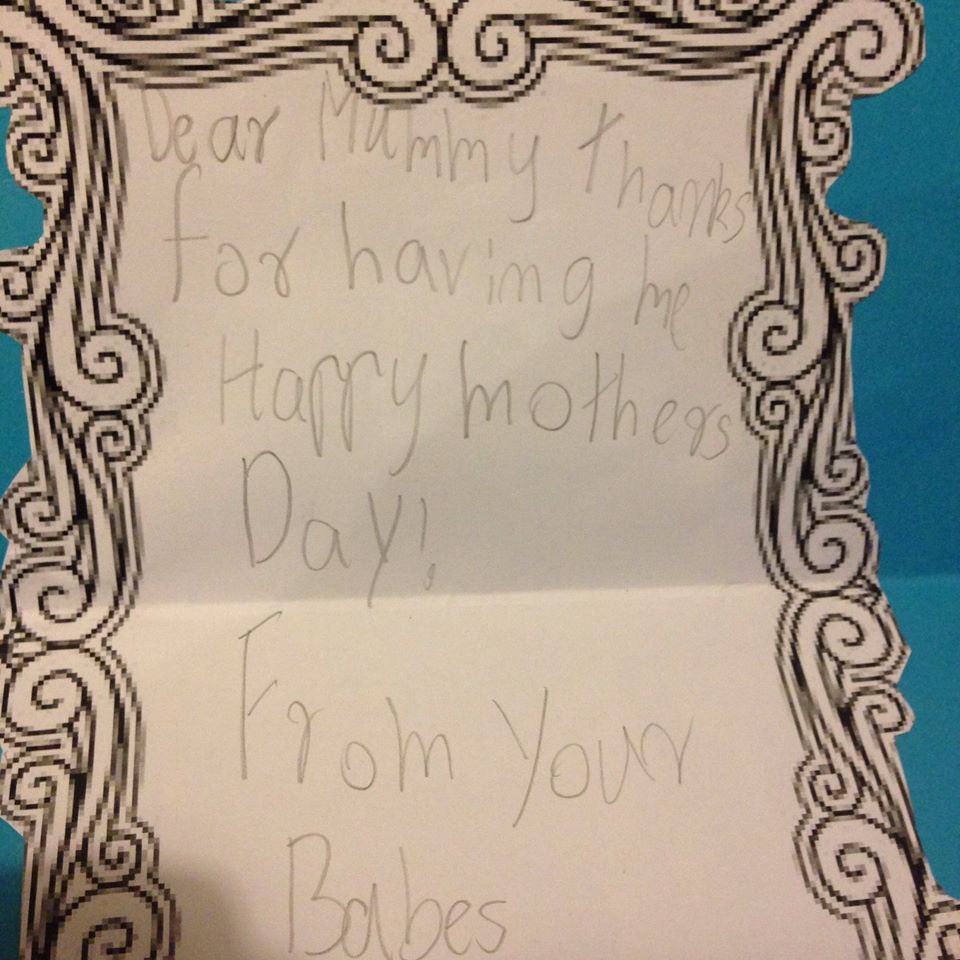 Dear Mummy thanks
for having me
Happy mothers
Day!
From your
Babes